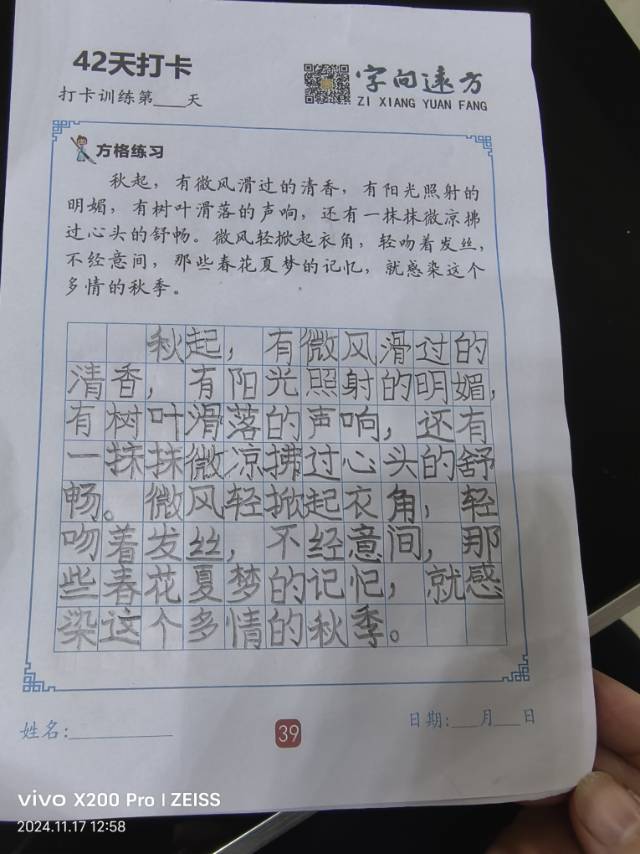 42天打卡
打卡训练第___天
字向远方
ZI XIANG YUAN FANG
方格练习
秋起，有微风滑过的清香，有阳光照射的
明媚，有树叶滑落的声响，还有一抹抹微凉拂
过心头的舒畅。微风轻掀起衣角，轻吻着发丝，
不经意间，那些春花夏梦的记忆，就感染这个
多情的秋季。
秋起，有微风滑过的
清香，有阳光照射的明媚，
有树叶滑落的声响，还有
一抹抹微凉拂过心头的舒
畅。微风轻掀起衣角，轻
吻着发丝，不经意间，那
些春花夏梦的记忆，就感
染这个多情的秋季。
姓名:
39
日期:___月___日
vivo X200 Pro | ZEISS
2024.11.17 12:58